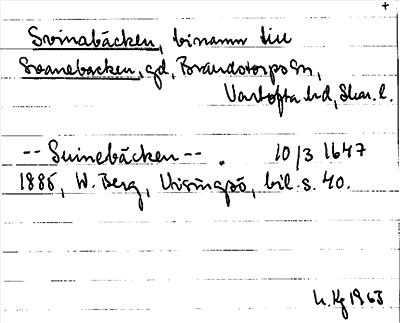 +
Svinabäcken, binamn till
Svanebacken, gd, Brandstorps sn,
Vartofta hd, Skar. l.
-- Suinebäcken -- . 10/3 1647
1885, W. Berg, Visingsö, bil. s. 40.
1963